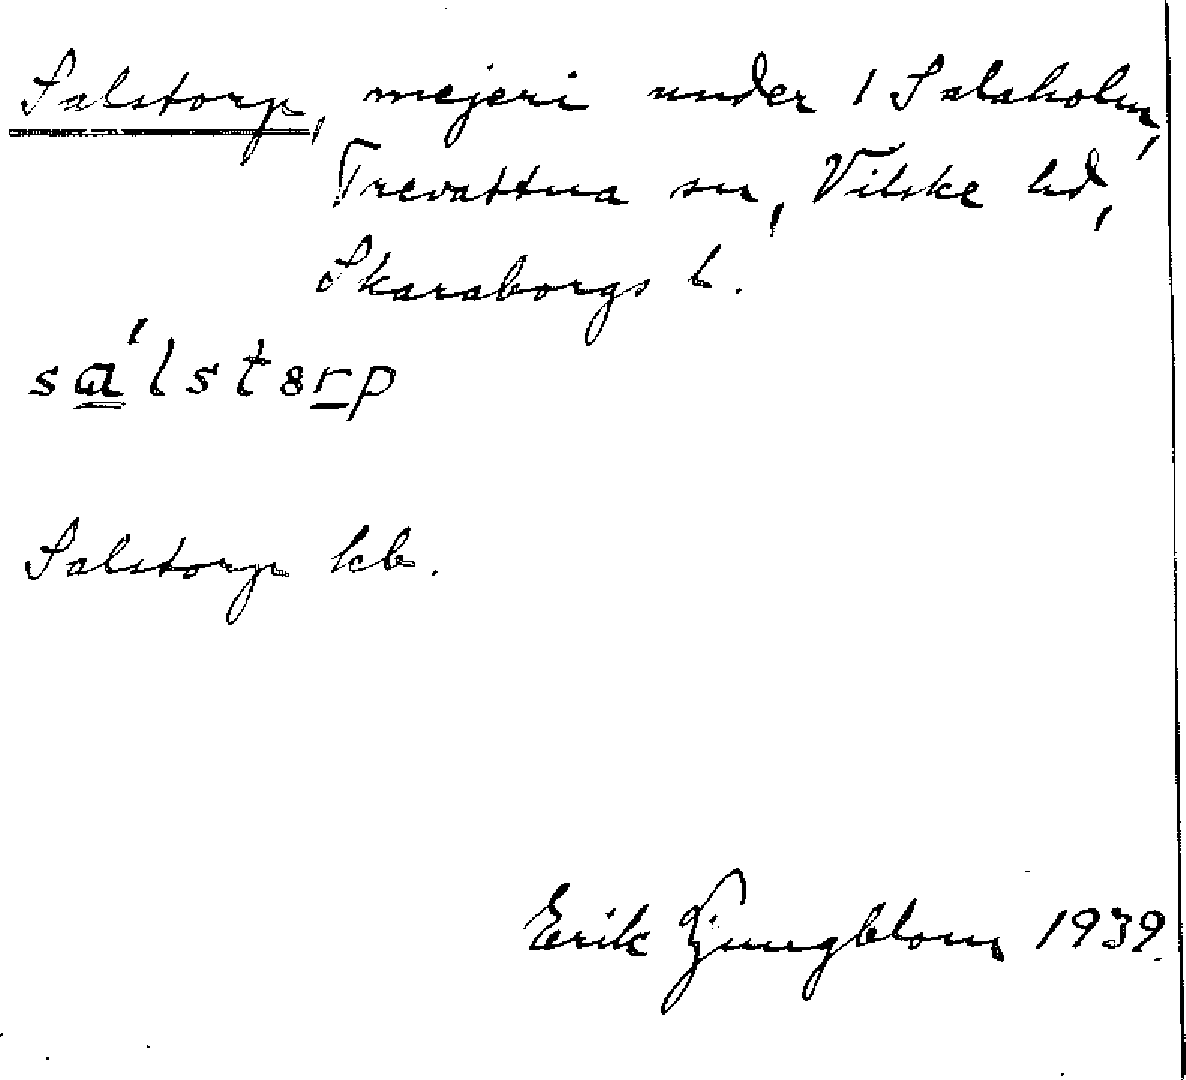 Salstorp, mejeri under 1 Salaholm,
Trevattna sn, Vilske hd,
Skaraborgs l.
sa̳ ́lstɞr̲p
Salstorp kb.
Erik Ljungblom 1939.